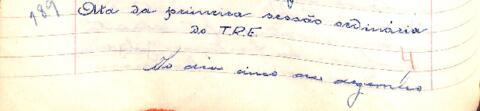 189
Ata da primeira sessão ordinária
do T.R.E.
4
No dia cinco de dezembro